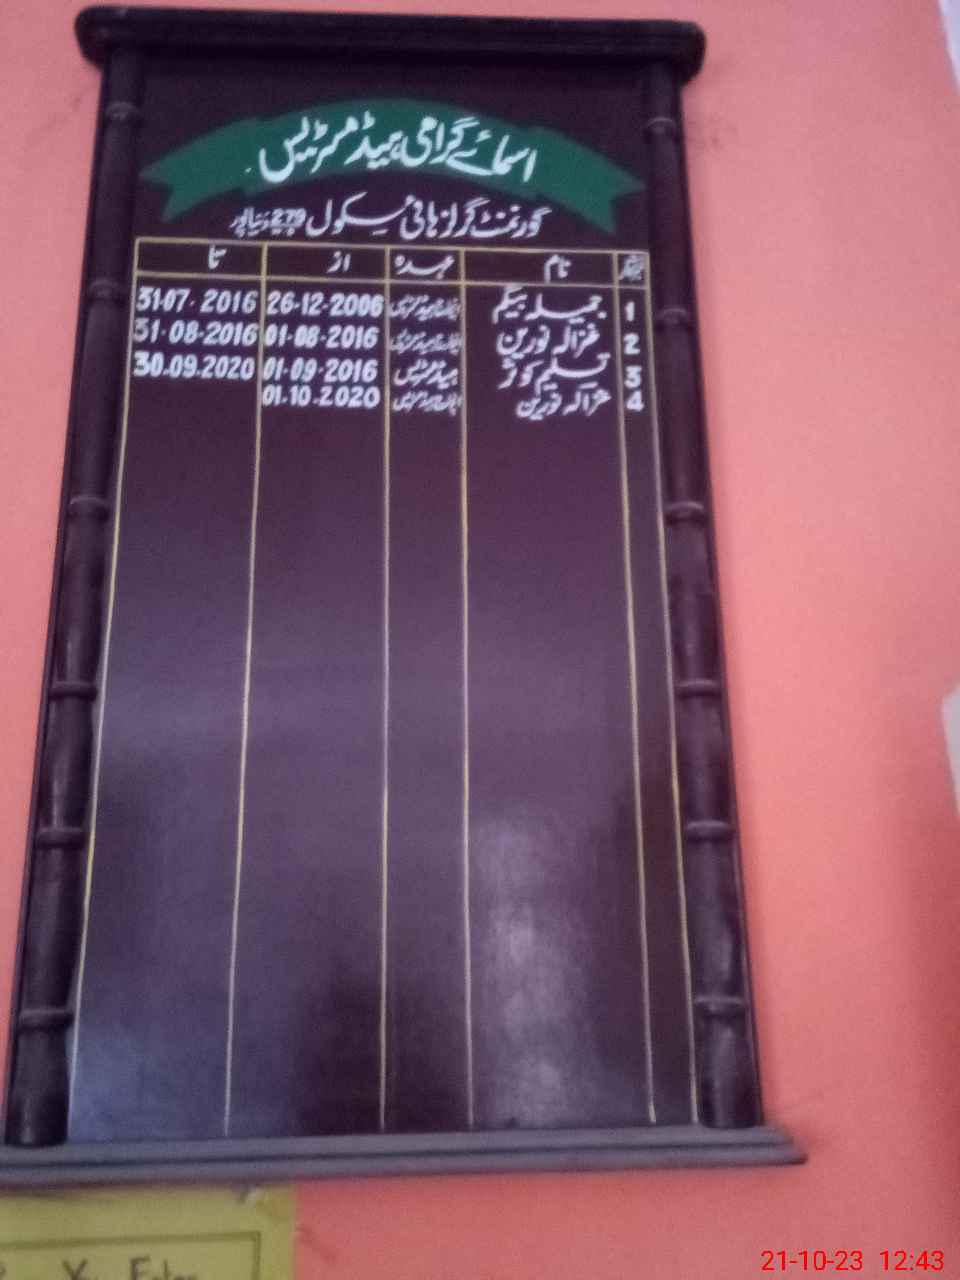 اسمائے گرامی ہیڈ مسٹریس
گورنمنٹ گرلز ہائی سکول 279 دنیاپور
نمبر شمار نام عہدہ از تا
1 جمیلہ بیگم انچارج ہیڈمسٹریس 26-12-2006 31-07-2016
2 غزالہ نورین انچارج ہیڈمسٹریس 01-08-2016 31-08-2016
3 تسلیم کوثر ہیڈمسٹریس 01-09-2016 30.09.2020
4 غزالہ نورین انچارج ہیڈمسٹریس 01-10-2020
21-10-23 12:43